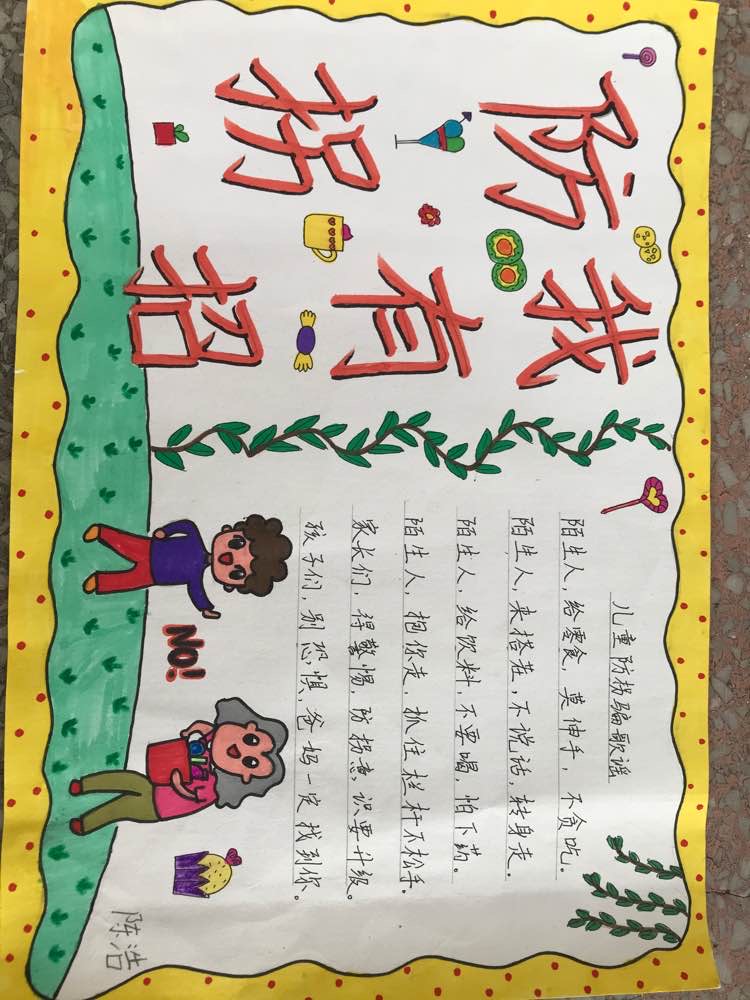 防拐
我有招
儿童防拐骗歌谣
陌生人,给零食,莫伸手,不贪吃。
陌生人,来搭茬,不说话,转身走。
陌生人,给饮料,不要喝,怕下药。
陌生人,抱你走,抓住栏杆不松手。
家长们,得警惕,防拐意识要升级。
孩子们,别恐惧,爸妈一定找到你。
NO!
陈浩